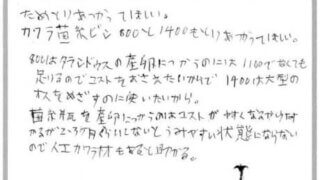 ためとりあつかってほしい。
カワラ菌糸ビン 800と1400もとりあつかってほしい。
800はタランドゥスの産卵につかうのには1100でなくても
足りるのでコストをおさえたいからで1400は大型の
オスをめざすのに使いたいから。
菌糸瓶を産卵につかうのはコストが
かかるが2〜3ヶ月くらいしないとうみやすい状態にならない
ので人工カワラ材もあると助かる。